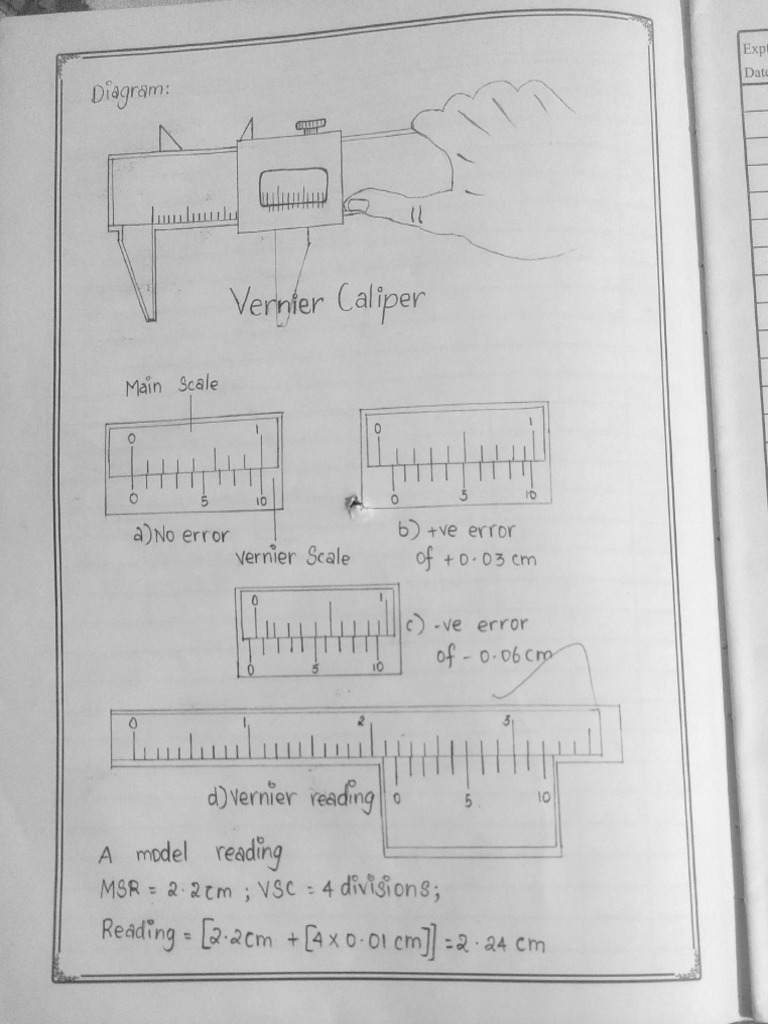 Expt
Date
Diagram:
Vernier Caliper
Main Scale
0 1
0 5 10
a) No error
Vernier Scale
0 1
0 5 10
b) +ve error
of +0.03 cm
0 1
0 5 10
c) -ve error
of - 0.06 cm
0 1 2 3
d) Vernier reading
0 5 10
A model reading
MSR = 2.2 cm ; VSC = 4 divisions;
Reading = [2.2cm + [4 x 0.01 cm]] = 2.24 cm